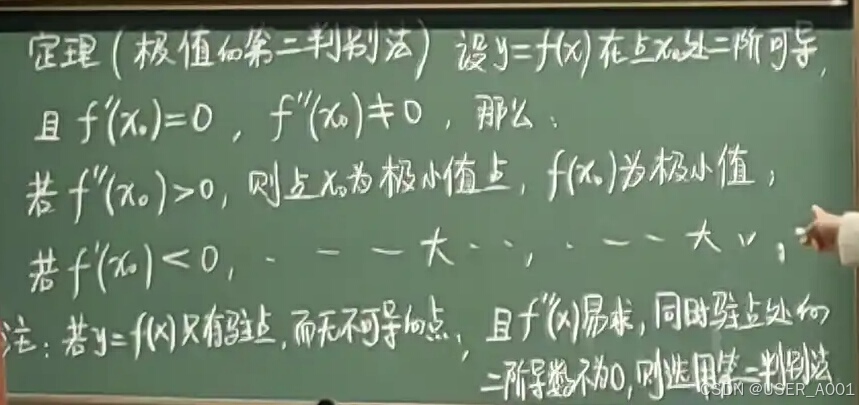 定理（极值的第二判别法）设y=f(x)在点x₀处二阶可导，
且f'(x₀)=0，f''(x₀)≠0，那么：
若f''(x₀)>0，则点x₀为极小值点，f(x₀)为极小值；
若f''(x₀)<0，- - - 大 · ·，· - - 大 〃；
注：若y=f(x)只有驻点，而无不可导的点，且f''(x)易求，同时驻点处的
二阶导数不为0，则选用第二判别法
CSDN @USER_A001